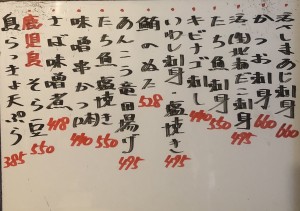 活〆しまあじ 660
かつお刺身 660
北海だこ刺身 495
たち魚刺身 550
キビナゴ刺し 440
いわし刺身・塩焼き 495
鮪のぬた 528
あんこう竜田揚げ 495
たち魚塩焼き 550
味噌串かつ 440
さば味噌煮 418
鹿児島そら豆 550
島らっきょ天ぷら 385